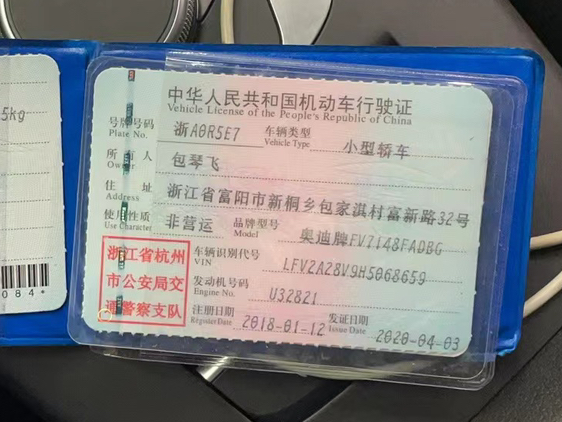 5kg
084*
中华人民共和国机动车行驶证
Vehicle License of the People's Republic of China
号牌号码 浙A0R5E7 车辆类型 小型轿车
Plate No. Vehicle Type
所有人 包琴飞
Owner
住址 浙江省富阳市新桐乡包家淇村富新路32号
Address
使用性质 非营运 品牌型号 奥迪牌FV7148FADBG
Use Character Model
浙江省杭州
市公安局交
通警察支队
车辆识别代号 LFV2A28V9H5068659
VIN
发动机号码 U32821
Engine No.
注册日期 2018-01-12 发证日期 2020-04-03
Register Date Issue Date